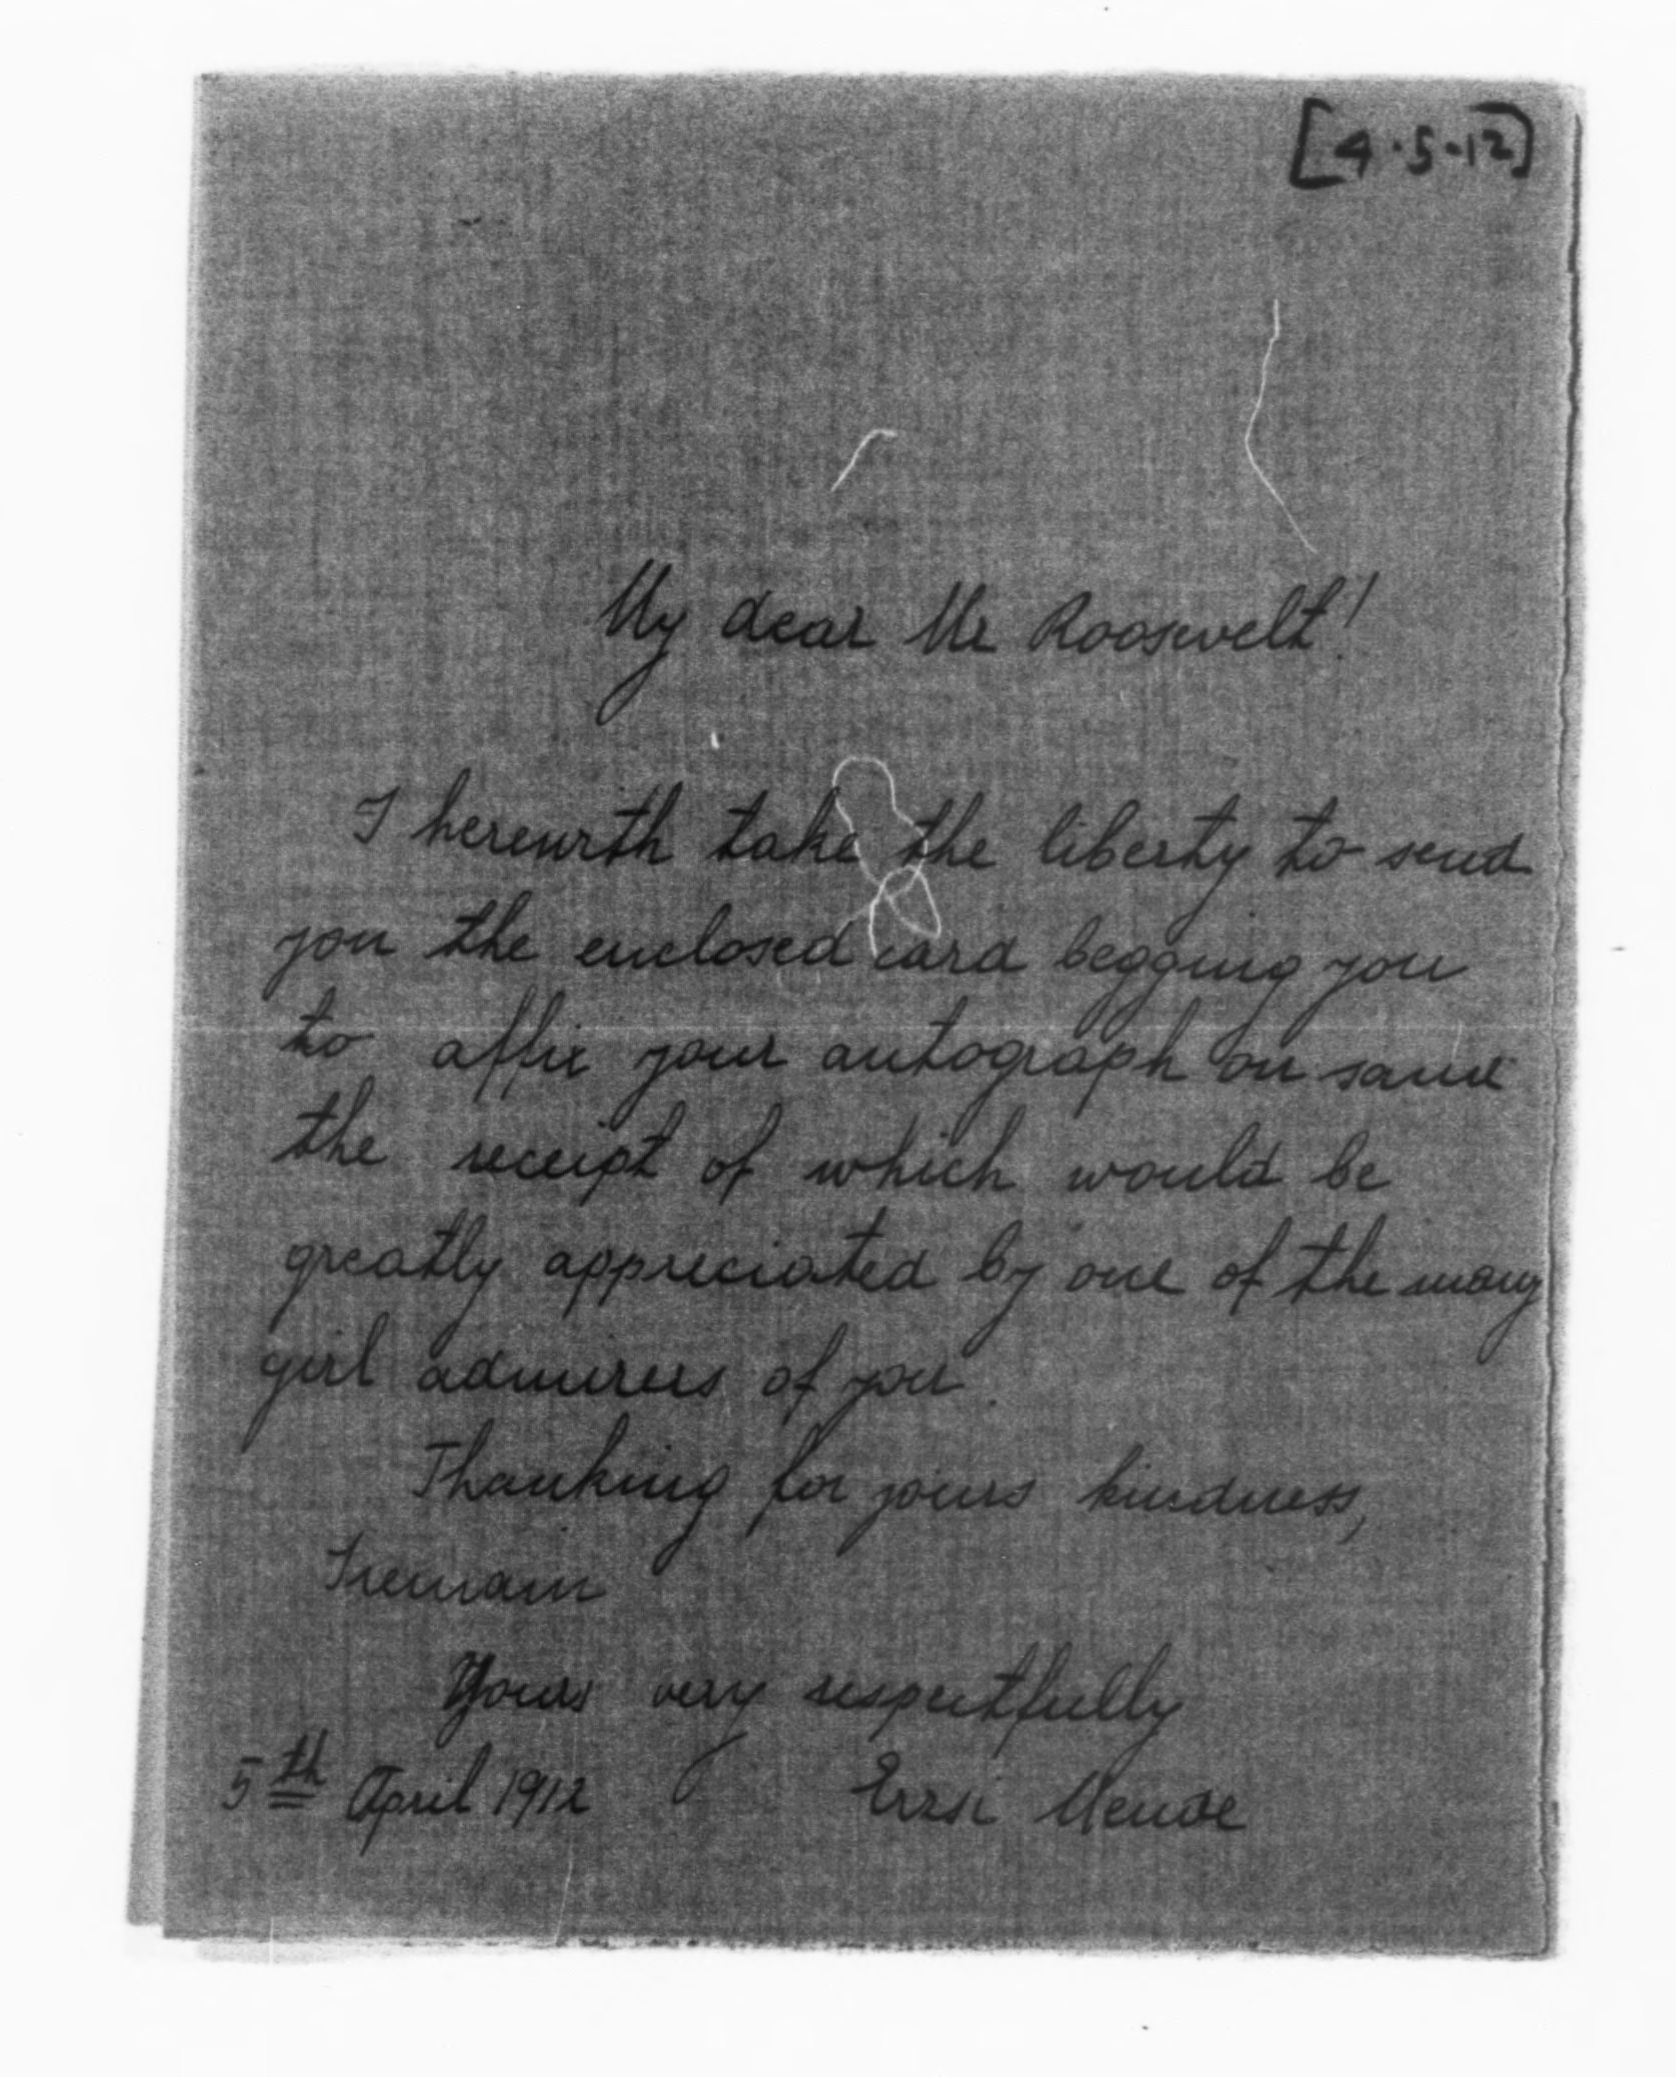 [4·5·12]
My dear Mr Roosevelt!
I herewith take the liberty to send
you the enclosed card begging you
to affix your autograph on same
the receipt of which would be
greatly appreciated by one of the many
girl admirers of you.
Thanking for yours kindness,
I remain
Yours very respectfully
5th April 1912 Erzsi Mende